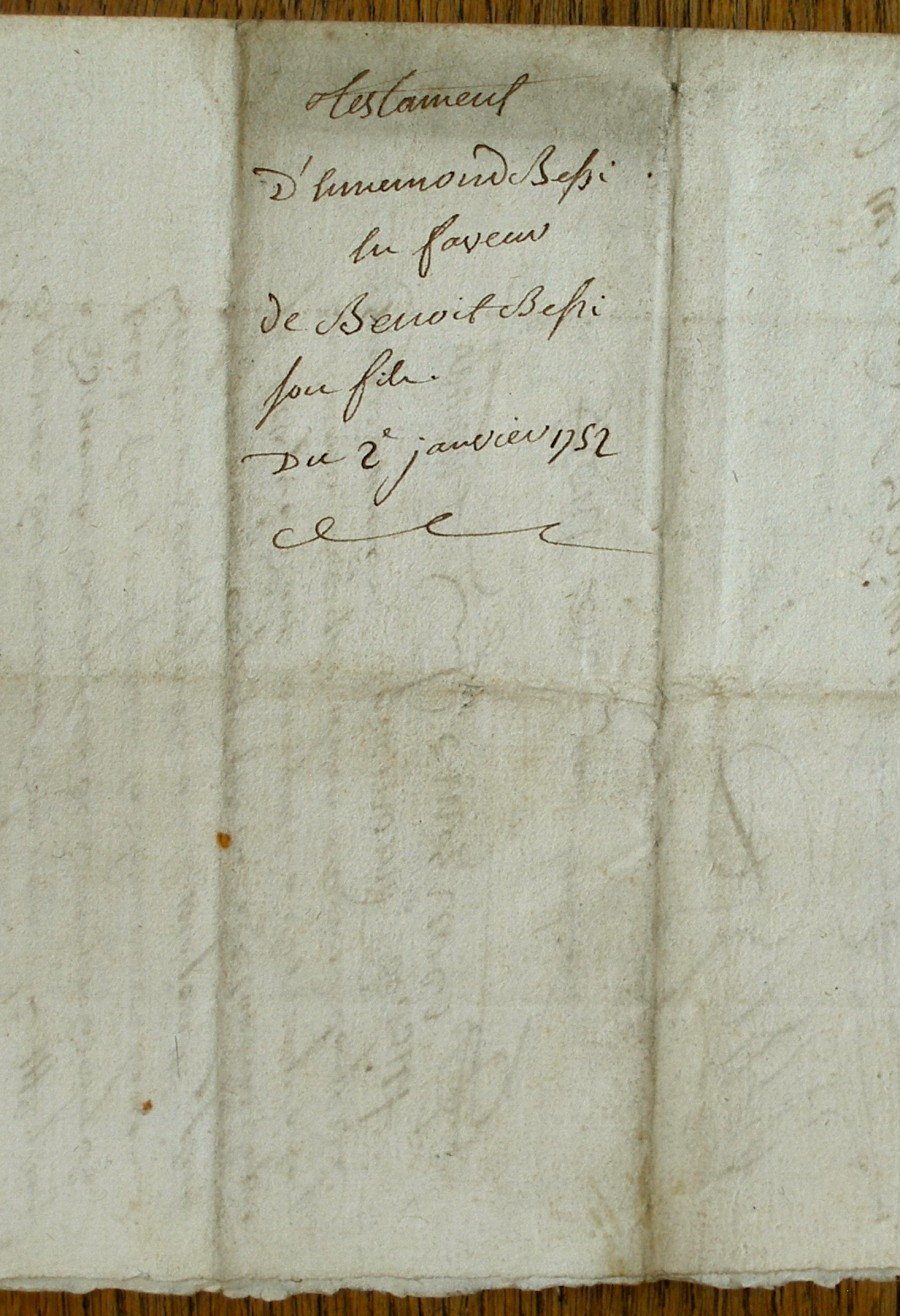 Testament
D'Ennemond Bessi
En faveur
de Benoit Bessi
son fils.
Du 2e janvier 1752